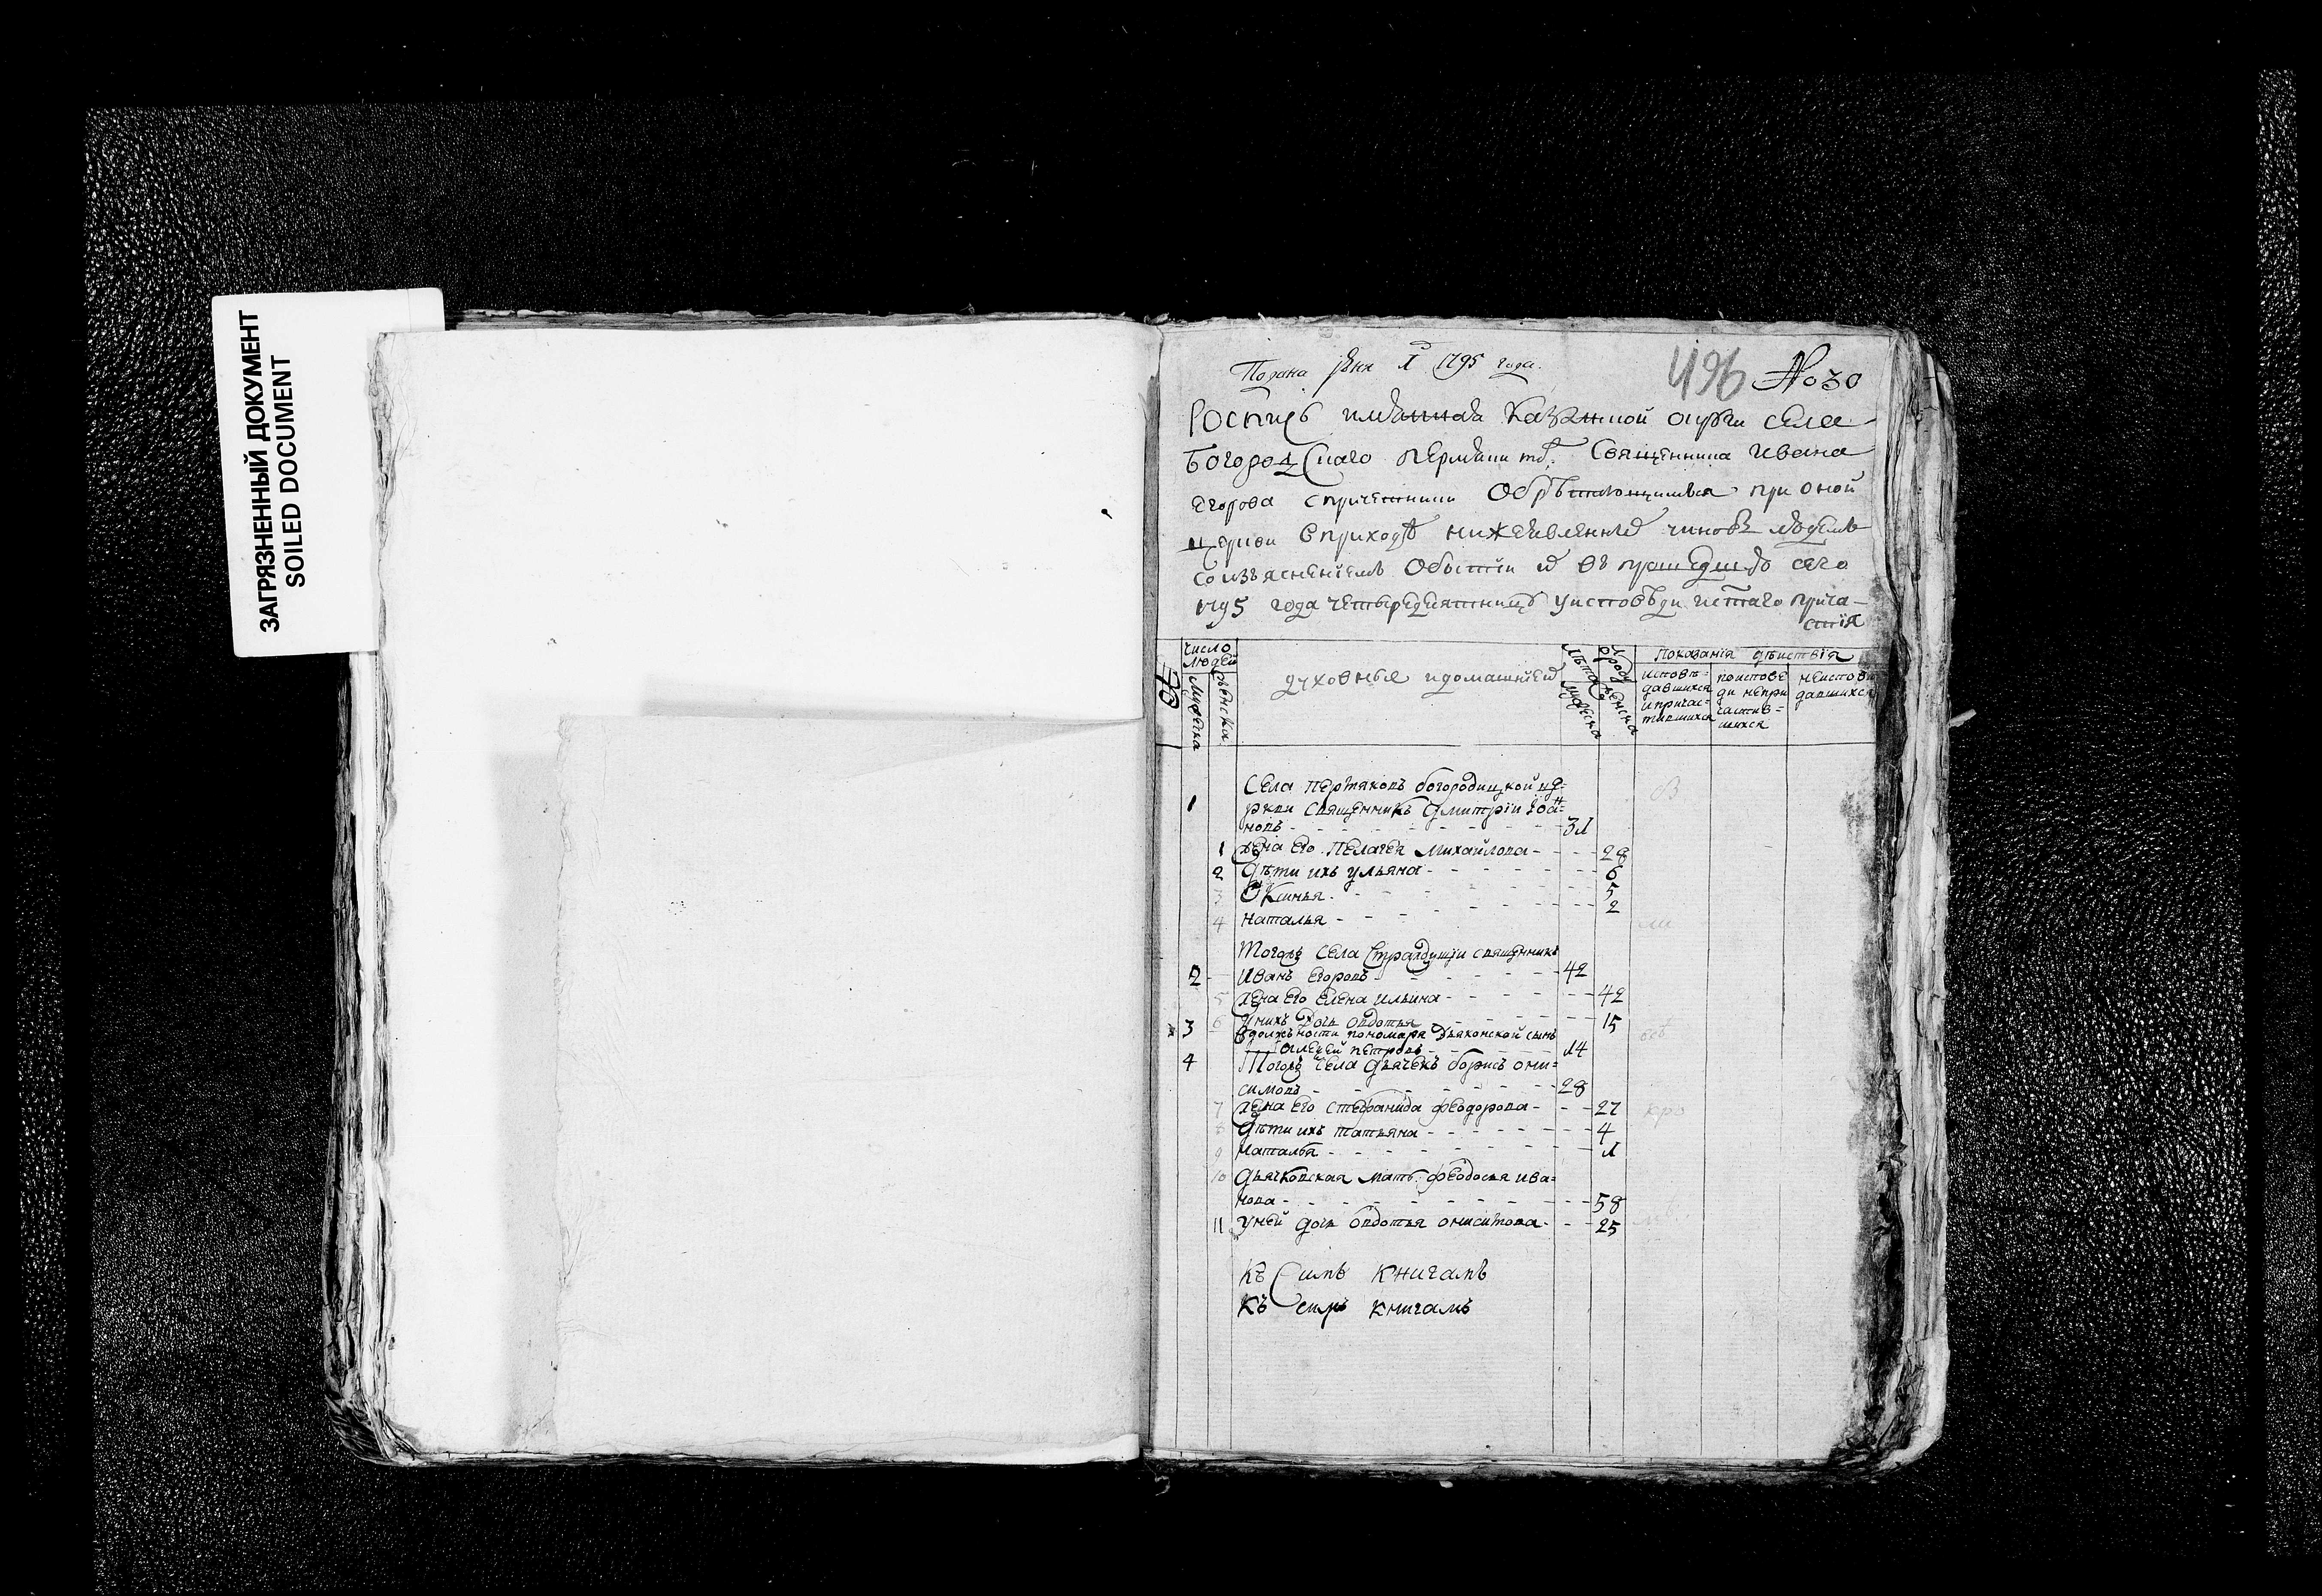 ЗАГРЯЗНЕННЫЙ ДОКУМЕНТ
SOILED DOCUMENT
Подана 1795 года.
496 № 30
Роспись Казанской округи села
Богородскаго Священника Ивана
Егорова спричетники Обрѣтающимся при оной
церкви вприходѣ нижеявленнымъ чиновъ людемъ
соизъясненіемъ О бытіи въ прошедшую сего
1795 года четыредесятницу уисповѣди истаго прича-
стія
число
людей
Мужеска
Женска
духовные идомашніе
лѣта от рожденія
мужеска
женска
показанія дѣиствія
исповѣ-
давшихся
ипричас-
тившихся
поиспове
ди непри
частив=
шихся
неиспов
давшихся
1 Села Пертяковъ богородицкой це=
ркви Священникъ Дмитріи Іоан=
новъ - 31
1 Жена Его Пелагея Михайлова - 28
2 Дѣти ихъ ульяна - 6
3 Ксинья - 5
4 Наталья - 2
Тогожъ Села священникъ
2 Иванъ Егоровъ - 42
5 Жена Его Елена ильина - 42
6 Унихъ Дочь овдотья - 15
3 вдолжности пономаря Дьяконской сынъ
Алексей петровъ - 14
4 Тогожъ Села Дьячекъ борисъ они=
симовъ - 28
7 Жена Его Стефанида феодорова - 27
8 Дѣти ихъ татьяна - 4
9 Наталья - 1
10 Дьячковская мать феодосья ива=
нова - 58
11 Уней Дочь Овдотья онисимова - 25
Къ Симъ Книгамъ
Къ Симъ Книгамъ